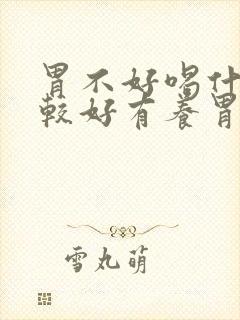 胃不好喝什
较好有养胃
雪丸萌